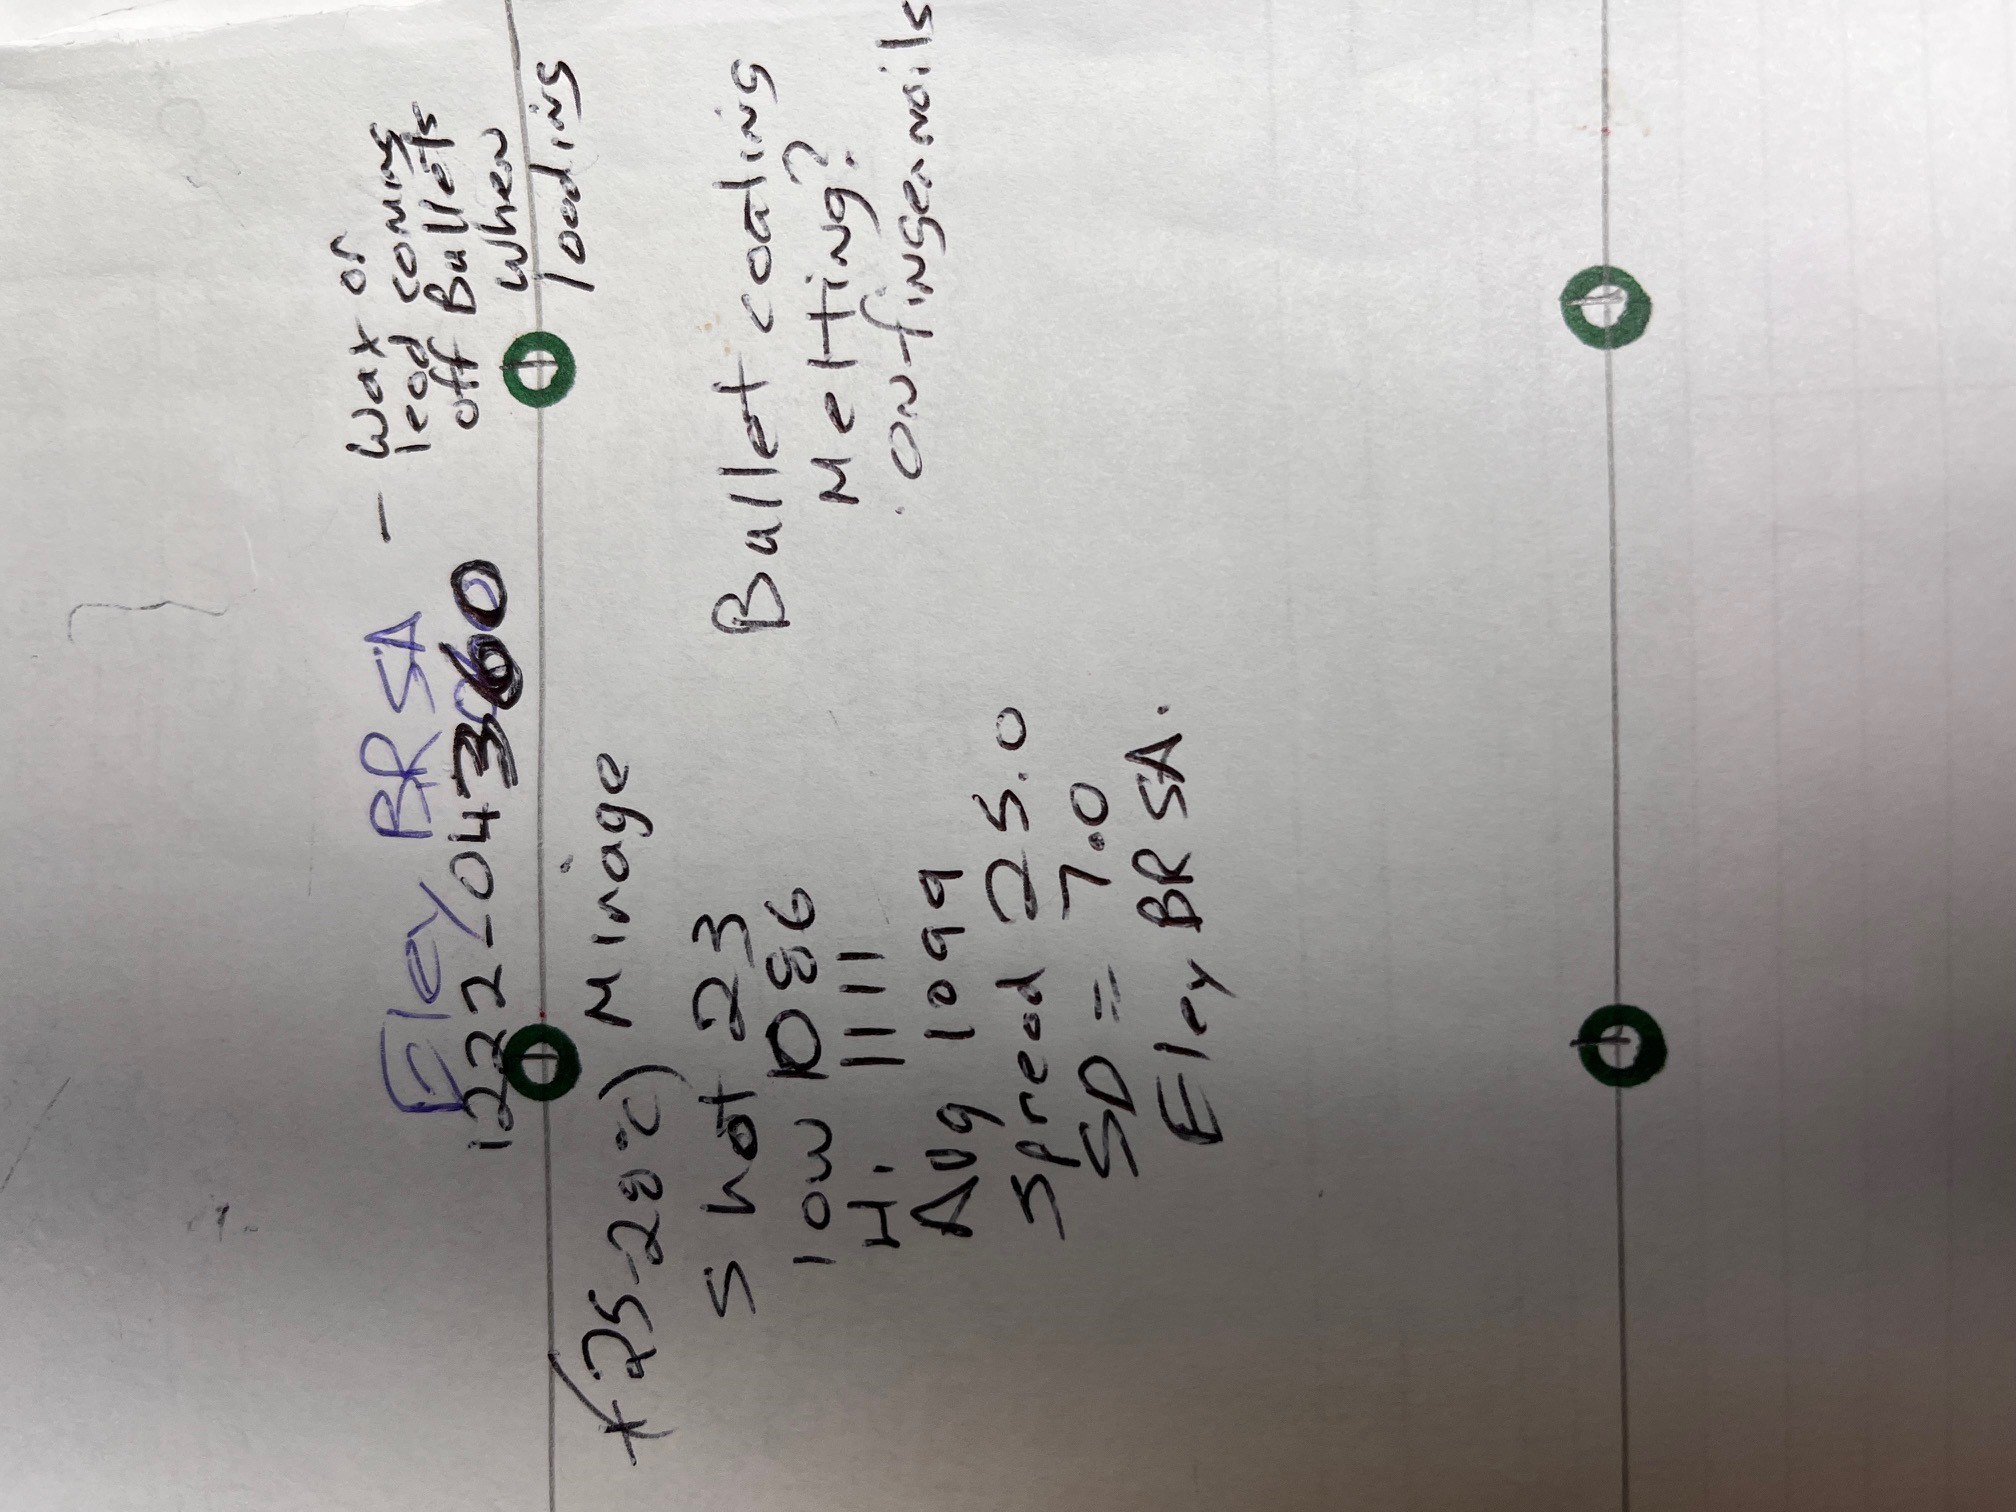 Eley BR SA
1222-04360
- Wax or
lead coming
off Bullets
when
loading
+(25-28°c) Mirage
Shot 23
low 1086
Hi 1111
Avg 1099
Spread 25.0
SD = 7.0
Eley BR SA.
Bullet coating
Melting?
on fingernails